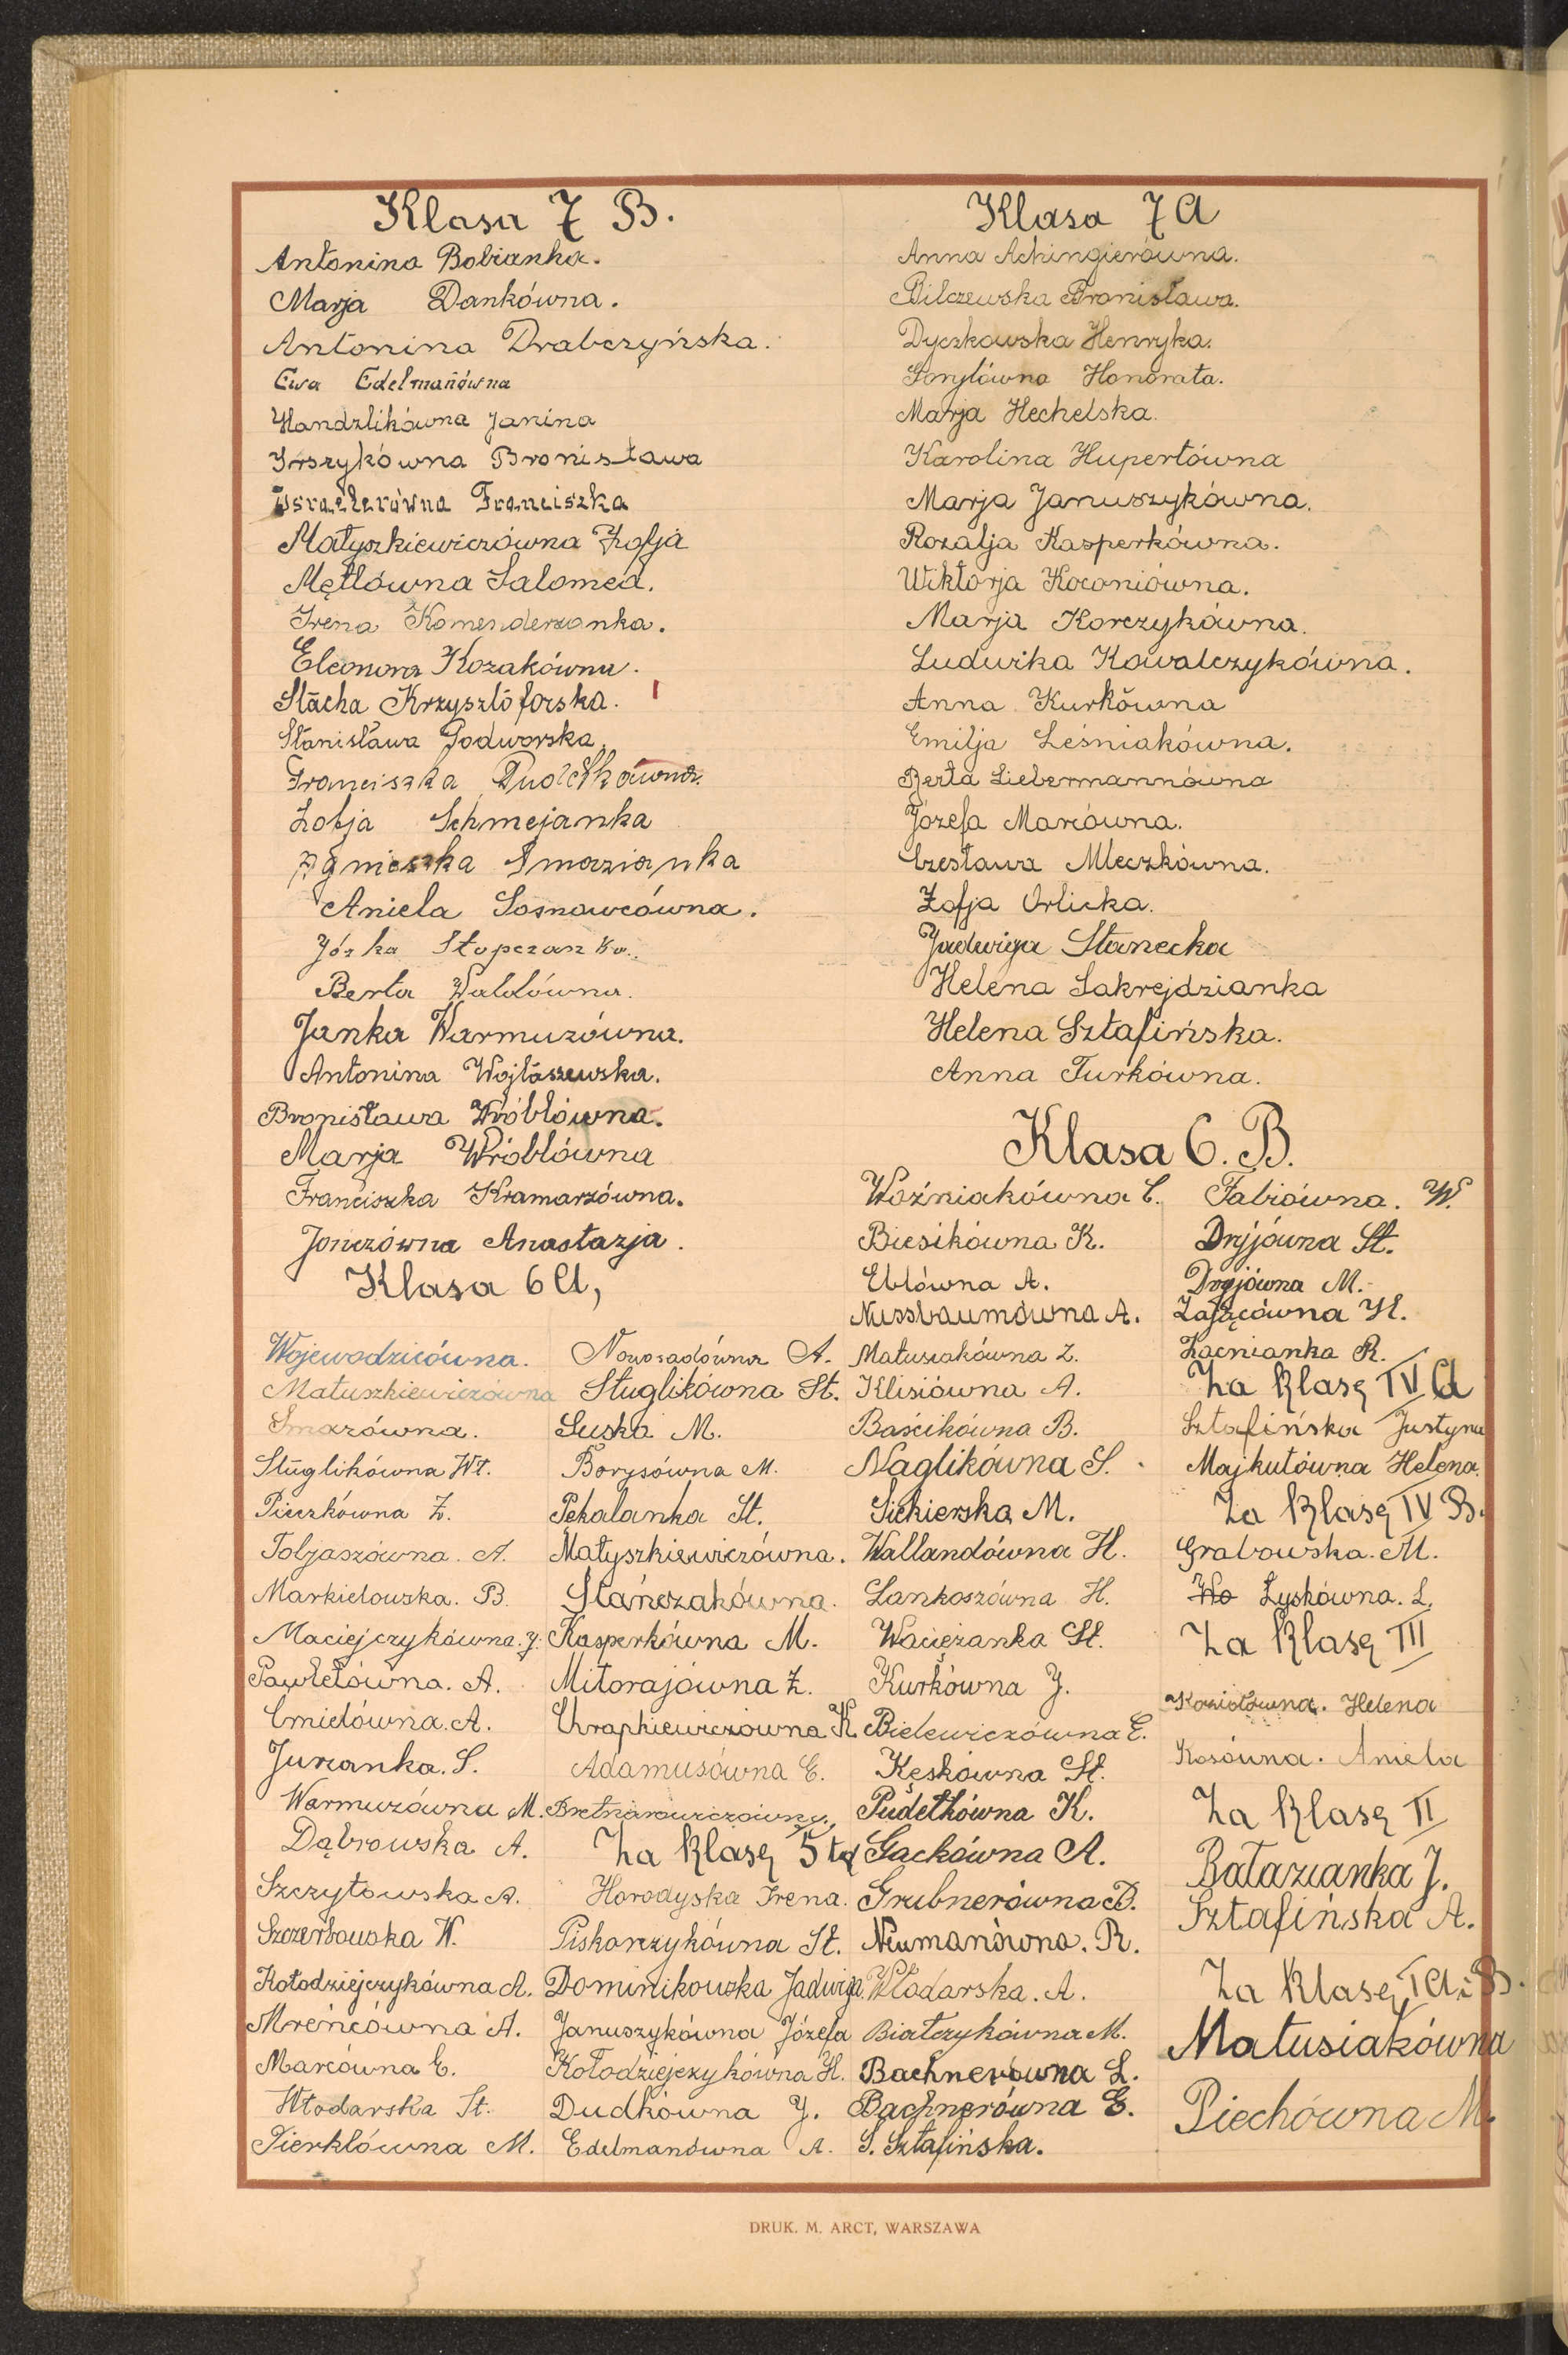 Klasa 7 B.
Antonina Bobianka.
Marja Dankówna.
Antonina Drabczyńska.
Ewa Edelmanówna
Handzlikówna Janina
Irszykówna Bronisława
Israelerówna Franciszka
Matyszkiewiczówna Zofja
Mętlówna Salomea.
Irena Komenderzanka.
Eleonora Kozakówna.
Stacha Krzysztoforska.
Stanisława Podworska.
Franciszka Pudełkówna.
Zofja Schmejanka
Agnieszka Smazianka
Aniela Sosnowcówna.
Józka Stopczanka.
Berta Waldówna.
Janka Warmuzówna.
Antonina Wojtaszewska.
Bronisława Wróblówna.
Marja Wróblówna
Franciszka Kramarzówna.
Jończówna Anastazja.
Klasa 7 A
Anna Achingierówna.
Bilczewska Bronisława.
Dyczkowska Henryka.
Honorata.
Marja Hechelska.
Karolina Hupertówna
Marja Januszykówna.
Rozalja Kasperkówna.
Wiktorja Koconiówna.
Marja Korczykówna.
Ludwika Kowalczykówna.
Anna Kurkówna
Emilja Leśniakówna.
Berta Liebermannówna
Józefa Marcówna.
Czesława Mleczkówna.
Zofja Orlicka.
Jadwiga Stanecka
Helena Sakrejdzianka
Helena Sztafińska.
Anna Turkówna.
Klasa 6 A,
Wojewodzicówna.
Matuszkiewiczówna
Smazówna.
Stuglikówna Wł.
Pieczkówna Z.
Tobjaszówna. A.
Markielowska. B.
Maciejczykówna. J.
Pawlelówna. A.
Cmielówna. A.
Jurzanka. S.
Warmuzówna M.
Dąbrowska A.
Szczytowska A.
Szczerbowska W.
Kołodziejczykówna A.
Mreńcówna A.
Marcówna E.
Włodarska St.
Pierklówna M.
Nowosadówna A.
Stuglikówna St.
Suska M.
Borysówna M.
Pękalanka St.
Matyszkiewiczówna.
Stańczakówna.
Kasperkówna M.
Mitorajówna Z.
Chrapkiewiczówna K.
Adamusówna E.
Za klasę 5 tą
Horodyska Irena.
Piskorzykówna St.
Dominikowska Jadwiga.
Januszykówna Józefa
Kołodziejczykówna H.
Dudkówna J.
Edelmanówna A.
Klasa 6. B.
Woźniakówna C.
Biesikówna K.
Eblówna A.
Nussbaumówna A.
Matusiakówna Z.
Klisiówna A.
Baścikówna B.
Naglikówna S.
Siekierska M.
Wallandówna H.
Lankoszówna H.
Waciężanka St.
Kurkówna J.
Bielewiczówna E.
Kęskówna St.
Pudełkówna K.
Gackówna A.
Grubnerówna B.
Neumanówna. R.
Włodarska. A.
Białczykówna M.
Bachnerówna L.
Bachnerówna E.
S. Sztafińska.
Fabiówna. W.
Dryjówna St.
Dryjówna M.
Zającówna H.
Zacnianka R.
Za klasę IV A
Sztafińska Justyna
Majkutówna Helena.
Za klasę IV B.
Grabowska. M.
Wo Łyskówna. L.
Za klasę III
Koziołówna. Helena
Kosówna. Aniela
Za klasę II
Bałazianka J.
Sztafińska A.
Za klasę I A i B.
Matusiakówna
Piechówna M.
DRUK. M. ARCT, WARSZAWA